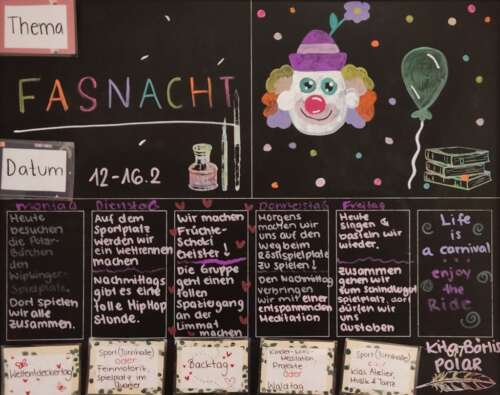 Thema
FASNACHT
Datum
12-16.2
Montag
Heute
besuchen
die Polar-
Bärchen
den
Wipkinger-
Spielplatz.
Dort spielen
wir alle
zusammen.
Dienstag
Auf dem
Sportplatz
werden wir
ein Wettrennen
machen
Nachmittags
gibt es eine
tolle HipHop
Stunde.
Wir machen
Früchte-
Schoki
Geister!
Die Gruppe
geht einen
tollen
Spaziergang
an der
Limmat
machen
Donnerstag
Morgens
machen wir
uns auf den
Weg beim
Röslispielplatz
zu spielen!
Den Nachmittag
verbringen
wir mit einer
entspannenden
Meditation
Freitag
Heute
singen &
basteln wir
wieder.
Zusammen
gehen wir
zum
spielplatz, dort
dürfen wir
uns
austoben
Life
is
a carnival
enjoy
the
Ride
Weltentdeckertag
Sport (Turnhalle)
oder
Feinmotorik,
Spielplatz im
Quartier
Backtag
Kinder-
Meditation
Projekte
oder
Waldtag
Sport (Turnhalle)
Kids Atelier,
Musik & Tanz
Kita Bärlis
POLAR